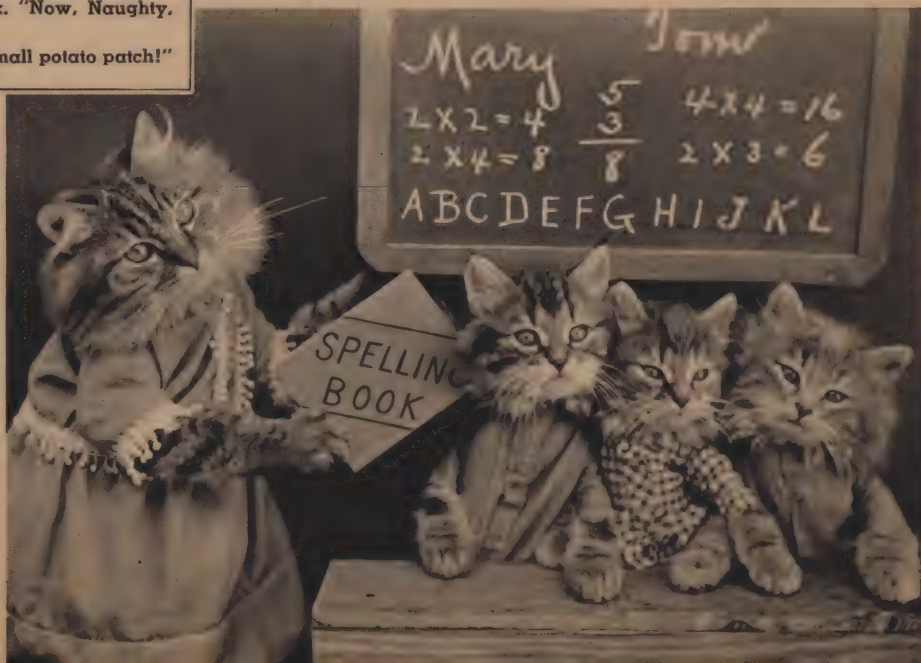 "Now, Naughty,
small potato patch!"
Mary Tom
2 X 2 = 4 5 4 X 4 = 16
2 X 4 = 8 3 2 X 3 = 6
8
A B C D E F G H I J K L
SPELLING
BOOK